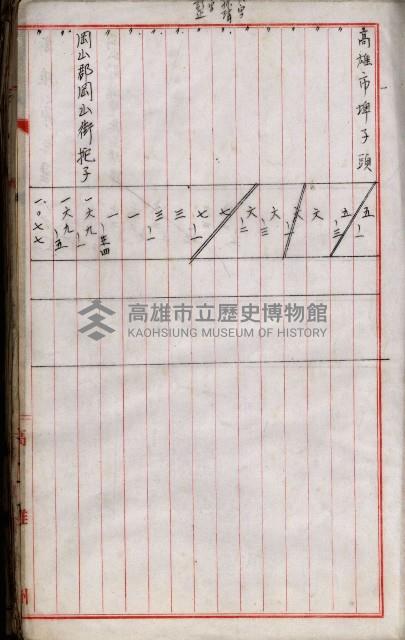 高雄市埤子頭 五ノ一
〃 五ノ三
〃 六
〃 六ノ一
〃 六ノ三
〃 六ノ二
〃 七
〃 七ノ一
〃 三
〃 三ノ一
〃 一
〃 一
岡山郡岡山街挖子 一六九ノ一
〃 一六九ノ五
〃 一〇七七
高雄州
高雄市立歷史博物館
KAOHSIUNG MUSEUM OF HISTORY